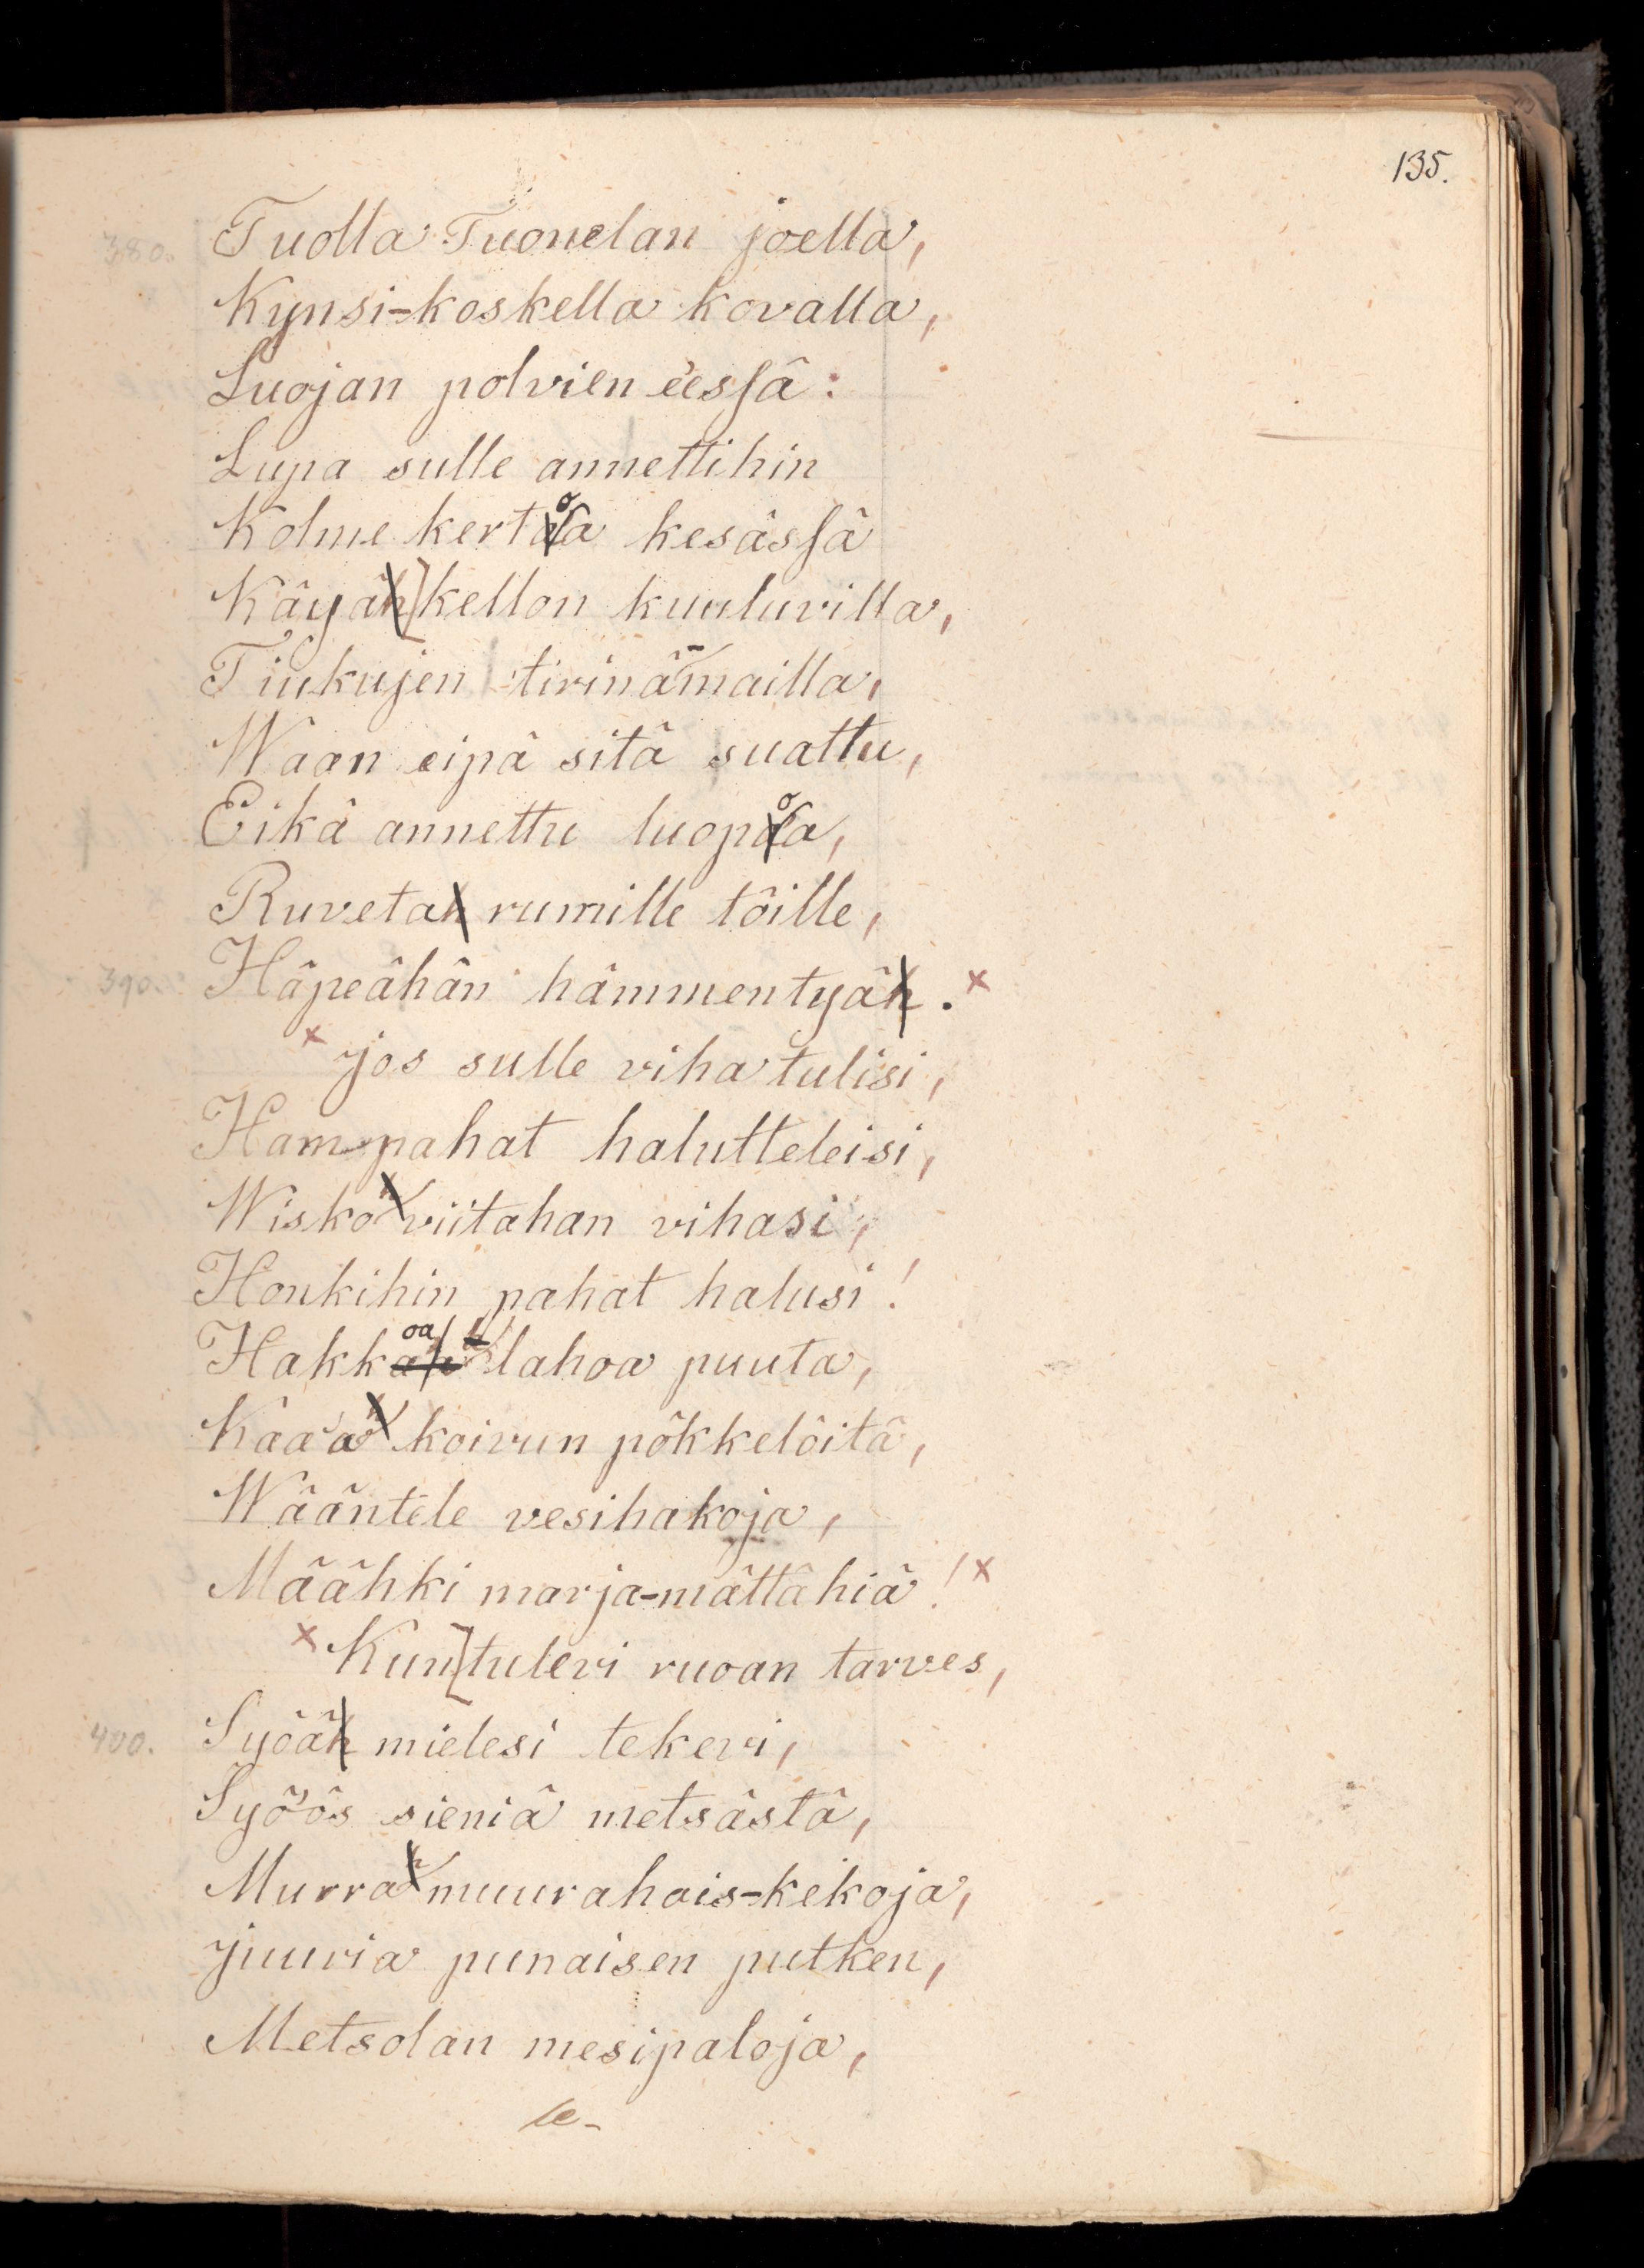 135.
380. Tuolla Tuonelan joella,
Kynsi-koskella kovalla,
Luojan polvien eessä:
Lupa sulle annettihin
Kolme kertoa kesässä
Käyä kellon kuuluvilla,
Tiukujen tirinämailla,
Waan eipä sitä suattu,
Eikä annettu luopoa,
Ruveta rumille töille,
390. Häpeähän hämmentyä. x
x Jos sulle viha tulisi,
Hampahat halutteleisi,
Wisko viitahan vihasi,
Honkihin pahat halusi!
Hakkoa lahoa puuta,
Kaa'a koivun pökkelöitä,
Wääntele vesihakoja,
Määhki marja-mättähiä! x
x Kun tulevi ruoan tarves,
400. Syöä mielesi tekevi,
Syö'ös sieniä metsästä,
Murra muurahais-kekoja,
Juuria punaisen putken,
Metsolan mesipaloja,